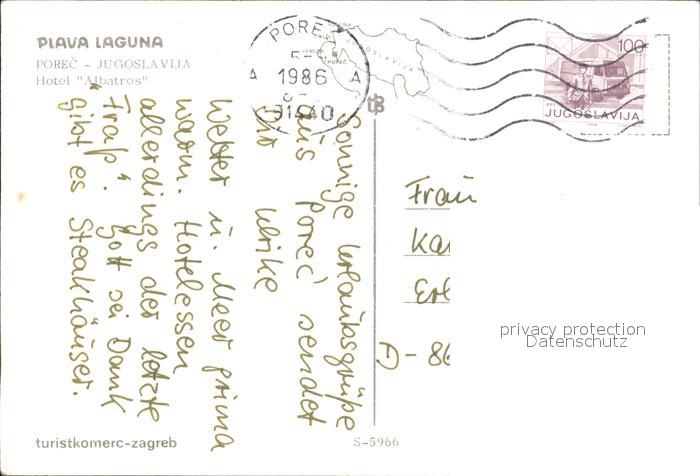 PLAVA LAGUNA
POREČ - JUGOSLAVIJA
Hotel "Albatros"
POREČ
1986
51440
JUGOSLAVIJA
POREČ
tB
100
PTT
JUGOSLAVIJA
Sonnige Urlaubsgrüße
aus Poreč sendet
Ihr Ulrike
Wetter u. Meer prima
warm. Hotelessen
allerdings der letzte
"Fraß". Gott sei Dank
gibt es Steakhäuser.
Frau
Ka
Erl
D-86
privacy protection
Datenschutz
turistkomerc-zagreb
S-5966